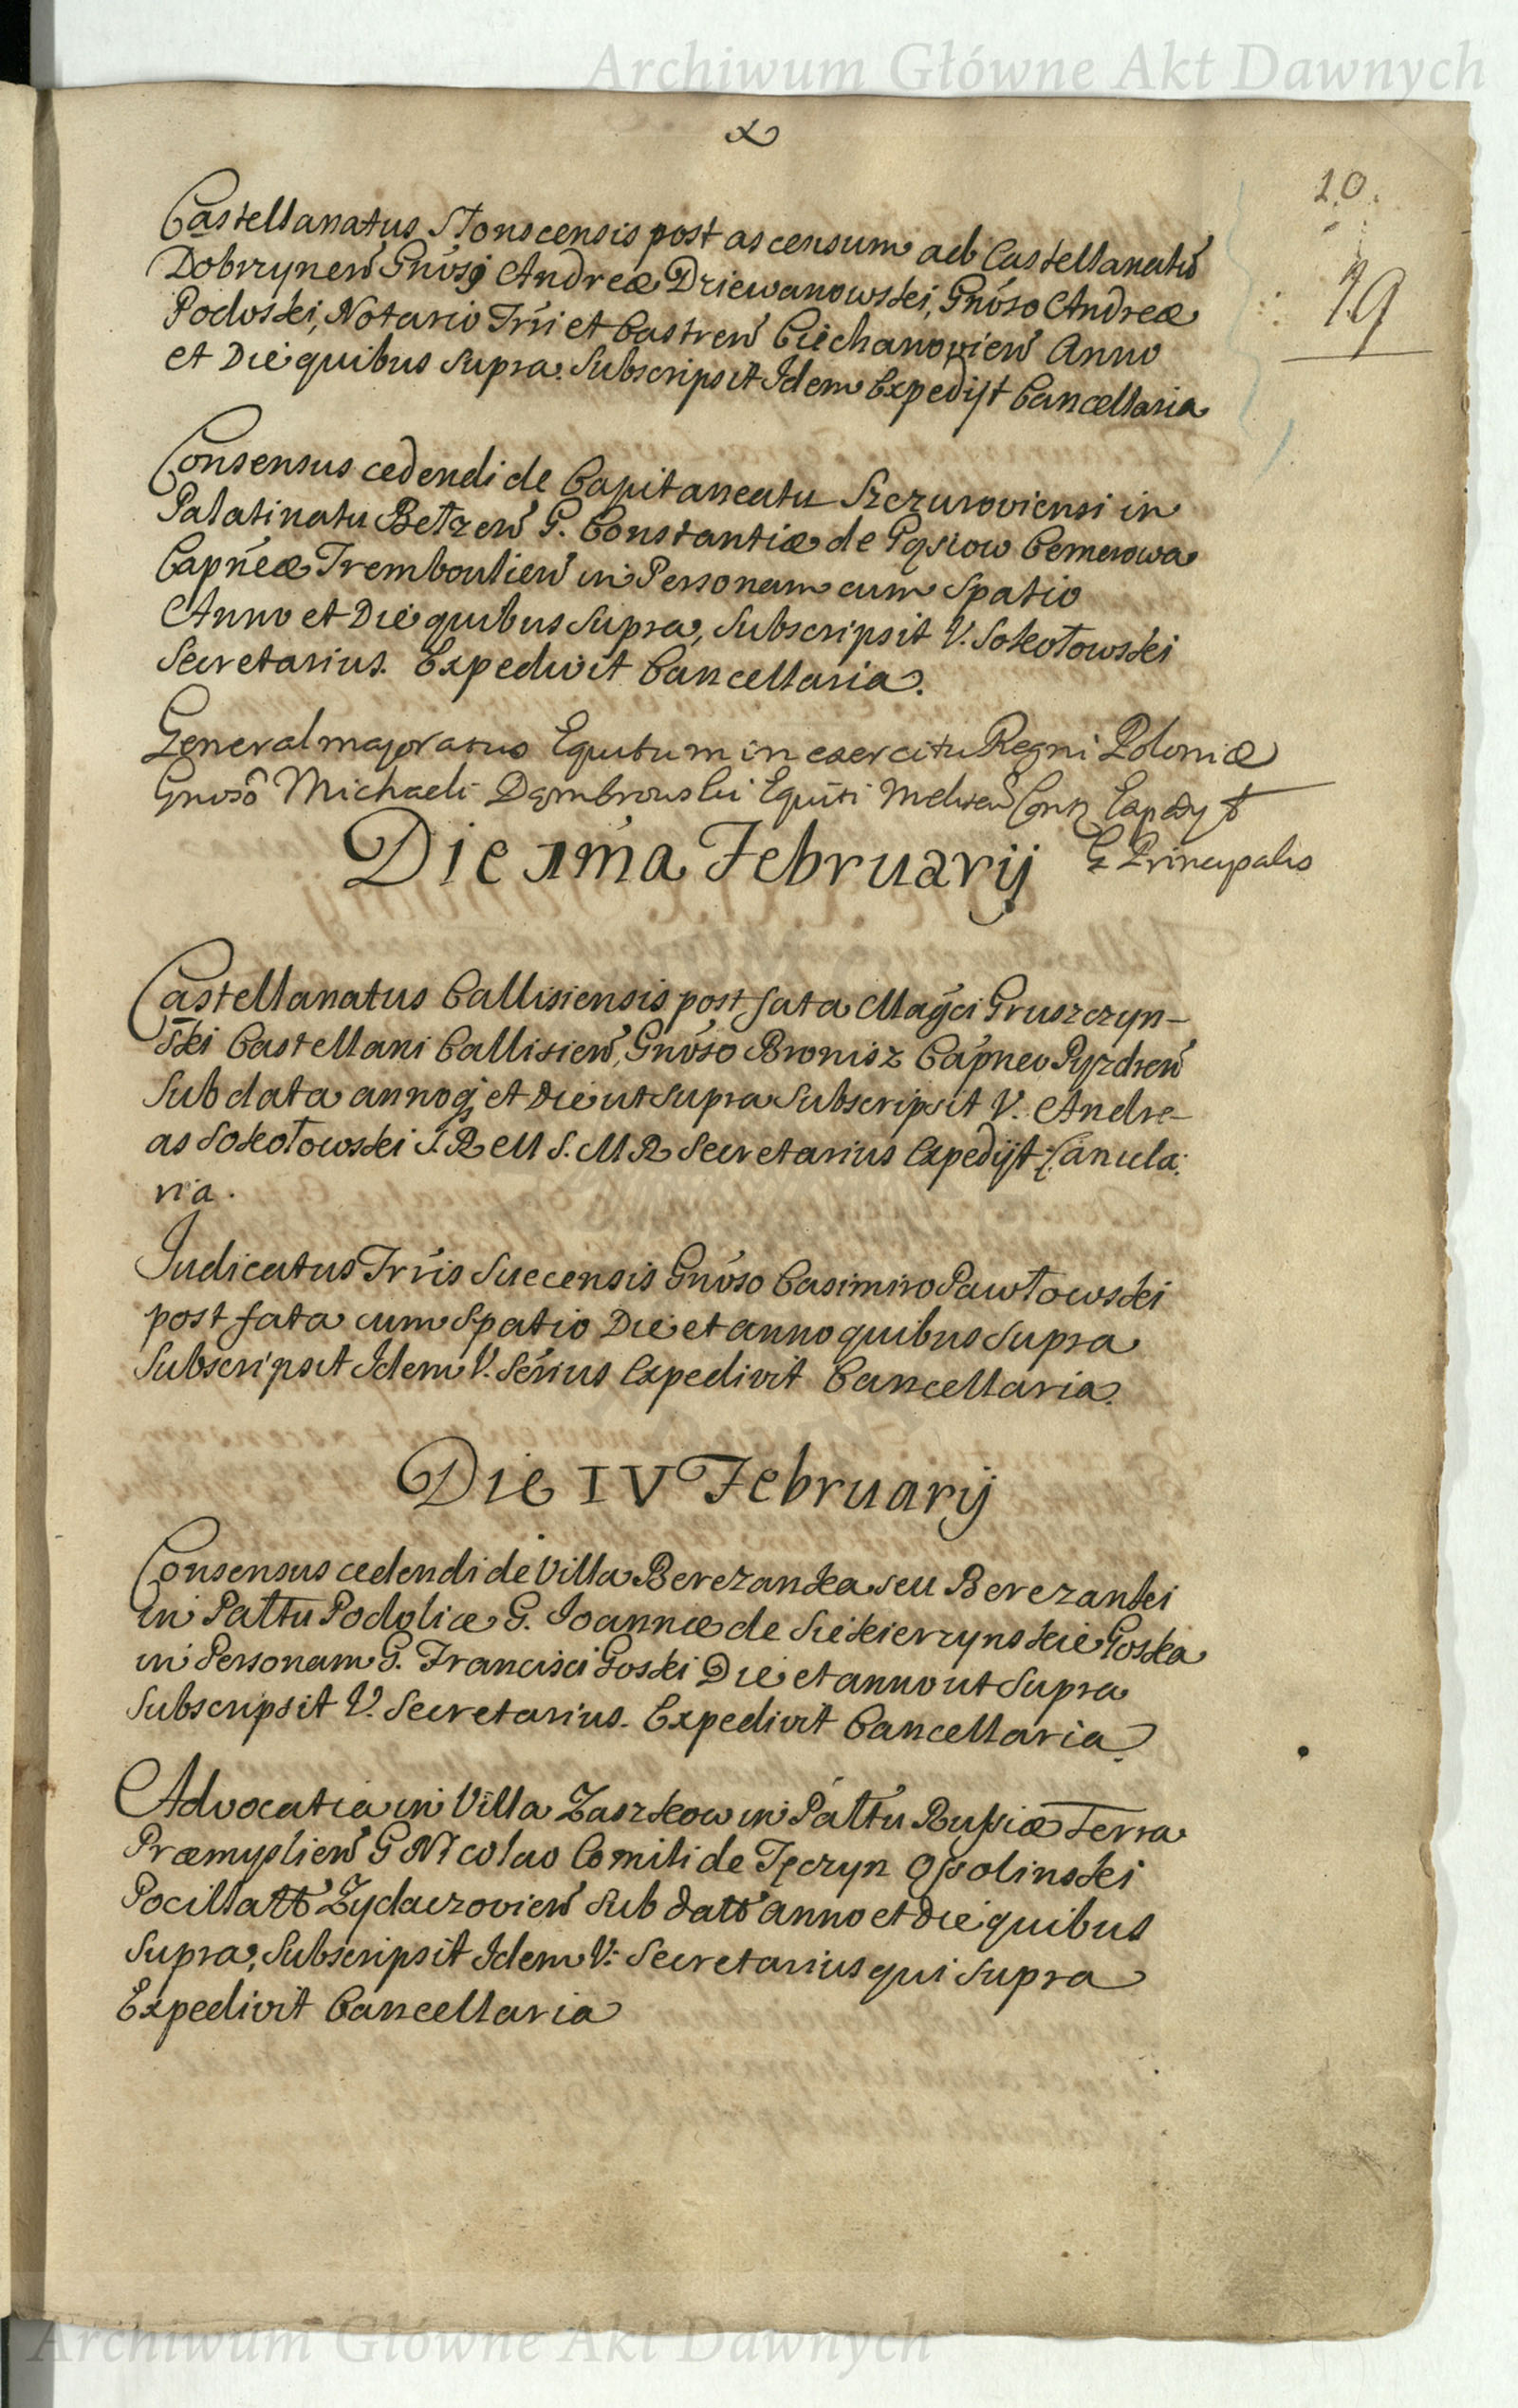 Archiwum Główne Akt Dawnych
10.
19
Castellanatus Słonscensis post ascensum ad Castellanatũ
Dobrzyneñ Gnosj Andreæ Dziewanowski, Gnoso Andreæ
Podoski, Notario Trri et Castreñ Ciechanovieñ Anno
et Die quibus supra. Subscripsit Idem Expedijt Cancellaria
Consensus cedendi de Capitaneatu Szczuroviensi in
Palatinatu Bełzeñ G. Constantiæ de Cetnerowa
Capñeæ Tremboulieñ in Personam cum Spatio
Anno et Die quibus supra, Subscripsit V. Sokołowski
Secretarius. Expedivit Cancellaria.
Generalmajoratus Equitum in exercitu Regni Poloniæ
Gnoso Michaeli Dąmbrowski Equiti Expedyt
Die 1ma Februarij G Principalis
Castellanatus Callisiensis post fata Magci Gruszczyn-
ski Castellani Callisieñ, Gnoso Bronisz Capneo Pyzdreñ
Sub data annoq et Die ut supra Subscripsit V. Andre-
as Sokołowski S. R M S. M R Secretarius Expedijt Cancela:
ria.
Judicatus Trris Succensis Gnoso Casimiro Pawłowski
post fata cum Spatio Die et anno quibus supra
Subscripsit Idem V. Sẽrius Expedivit Cancellaria.
Die IV Februarij
Consensus cedendi de Villa Berezanka seu Berezanki
in Pałttu Podoliæ G. Joannæ de Siekierzynskie Goska
in Personam G. Francisci Goski Die et anno ut Supra
Subscripsit V. Secretarius. Expedivit Cancellaria.
Advocatia in Villa Zaszkow in Pałtu Russiæ Terra
Præmyslieñ G Nicolao Comiti de Tęczyn Ossolinski
Pocillatt Zydaczovieñ Sub datt anno et Die quibus
supra, Subscripsit Idem V: Secretarius qui supra
Expedivit Cancellaria
Archiwum Główne Akt Dawnych